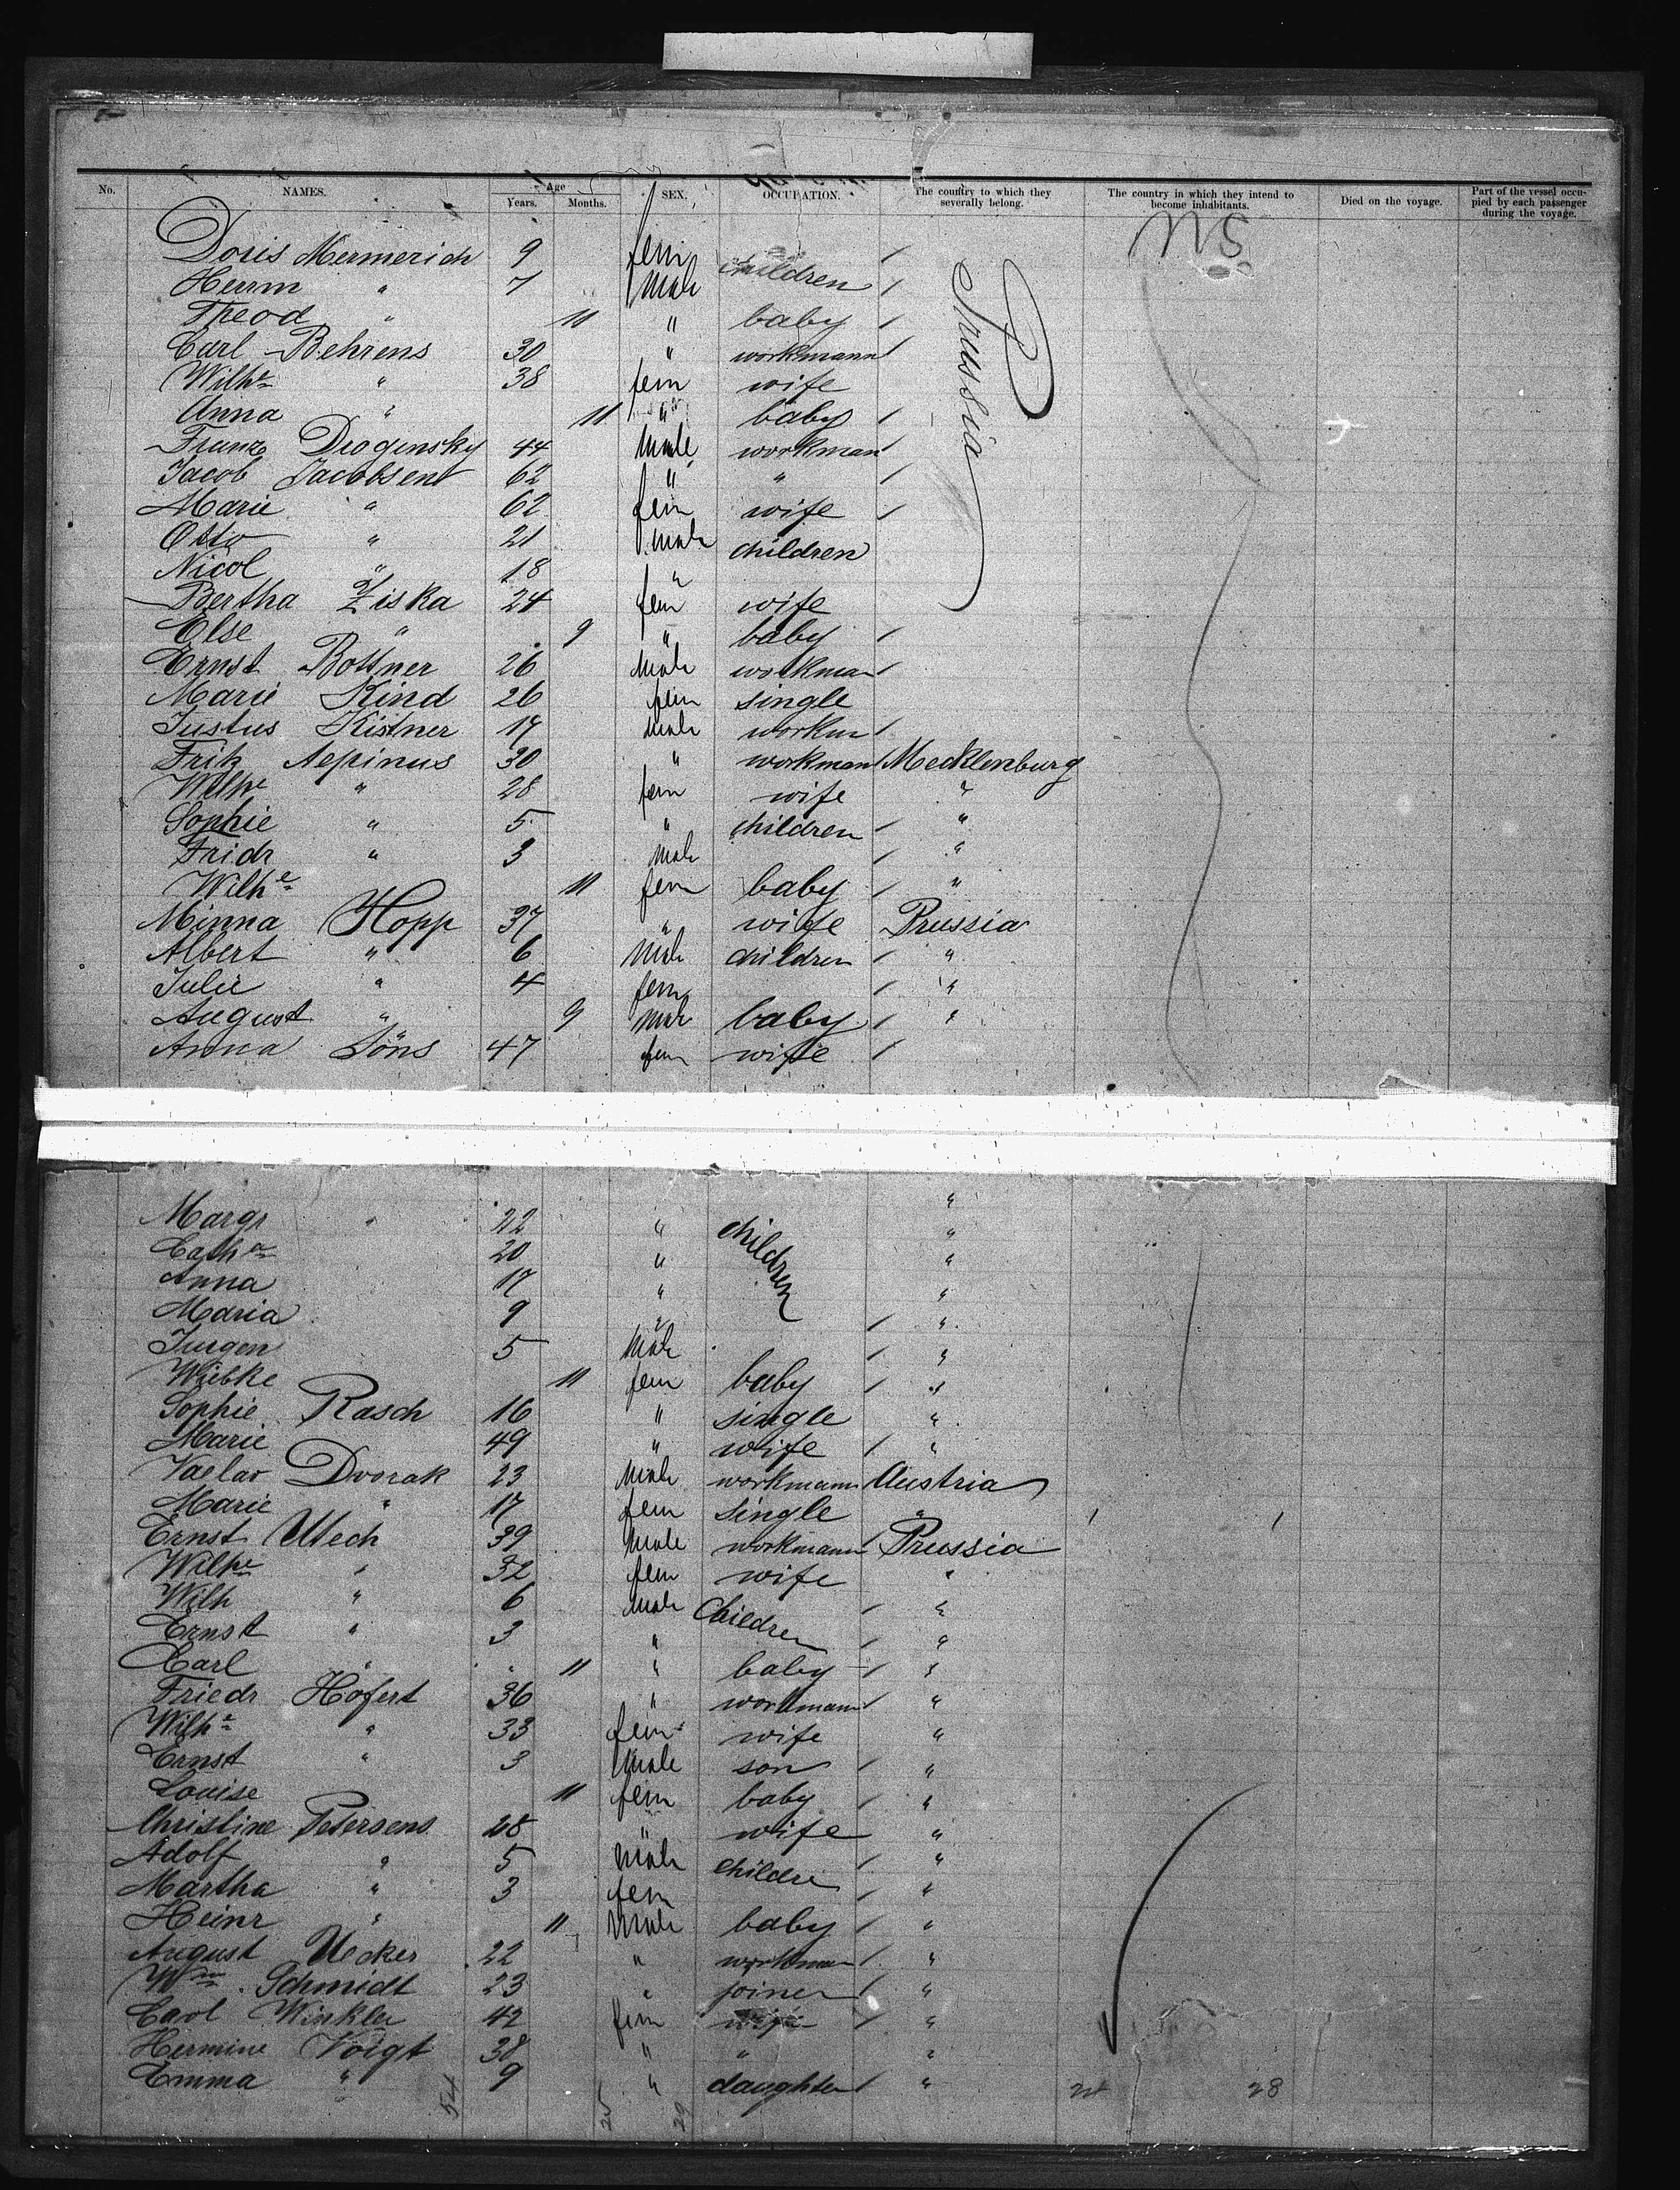 No. NAMES. Age Years. Months. SEX. OCCUPATION. The country to which they severally belong. The country in which they intend to become inhabitants. Died on the voyage. Part of the vessel occupied by each passenger during the voyage.
Doris Mermerich 9 fem children / Prussia
Herm " 7 Male /
Theod " 11 " baby /
Carl Behrens 30 " workmann /
Wilhe " 38 fem wife
Anna " 11 " baby /
Franz Drogensky 44 Male workman
Jacob Jacobsen 62 " " /
Marie " 62 fem wife /
Otto " 21 Male children
Nicol " 18 "
Bertha Ziska 24 fem wife
Else " 9 " baby /
Ernst Bottner 26 Male workman /
Marie Kind 26 fem single
Justus Kistner 17 Male workm /
Fritz Aepinus 30 " workman / Mecklenburg
Wilhe " 28 fem wife "
Sophie " 5 " children / "
Fridr " 3 Male / "
Wilhe 11 fem baby / "
Minna Hopp 37 " wife Prussia
Albert " 6 Male children / "
Julie " 4 fem / "
August " 9 Male baby / "
Anna Jöns 47 fem wife /
Margr " 22 " children "
Catha 20 " "
Anna 17 " "
Maria 9 " / "
Jurgen 5 Male / "
Wiebke 11 fem baby / "
Sophie Rasch 16 " single "
Marie 49 " wife / "
Vaclav Dvorak 23 Male workmann Austria
Marie " 17 fem single " / /
Ernst Utech 39 Male workmann / Prussia
Wilhe " 32 fem wife "
Wilh " 6 Male Children / "
Ernst " 3 " / "
Carl " 11 " baby / "
Friedr Höfert 36 " workmann / "
Wilhe " 33 fem wife "
Ernst " 3 Male son / "
Louise 11 fem baby / "
Christine Petersens 28 " wife "
Adolf " 5 Male childre / "
Martha " 3 fem / "
Heinr " 11 Male baby / "
August Uecker 22 " workman / "
Wm. Schmidt 23 " joiner / "
Carol Winkler 42 fem wife / "
Hermine Voigt 38 " " "
Emma " 9 " daughter / "
54 25 29 28